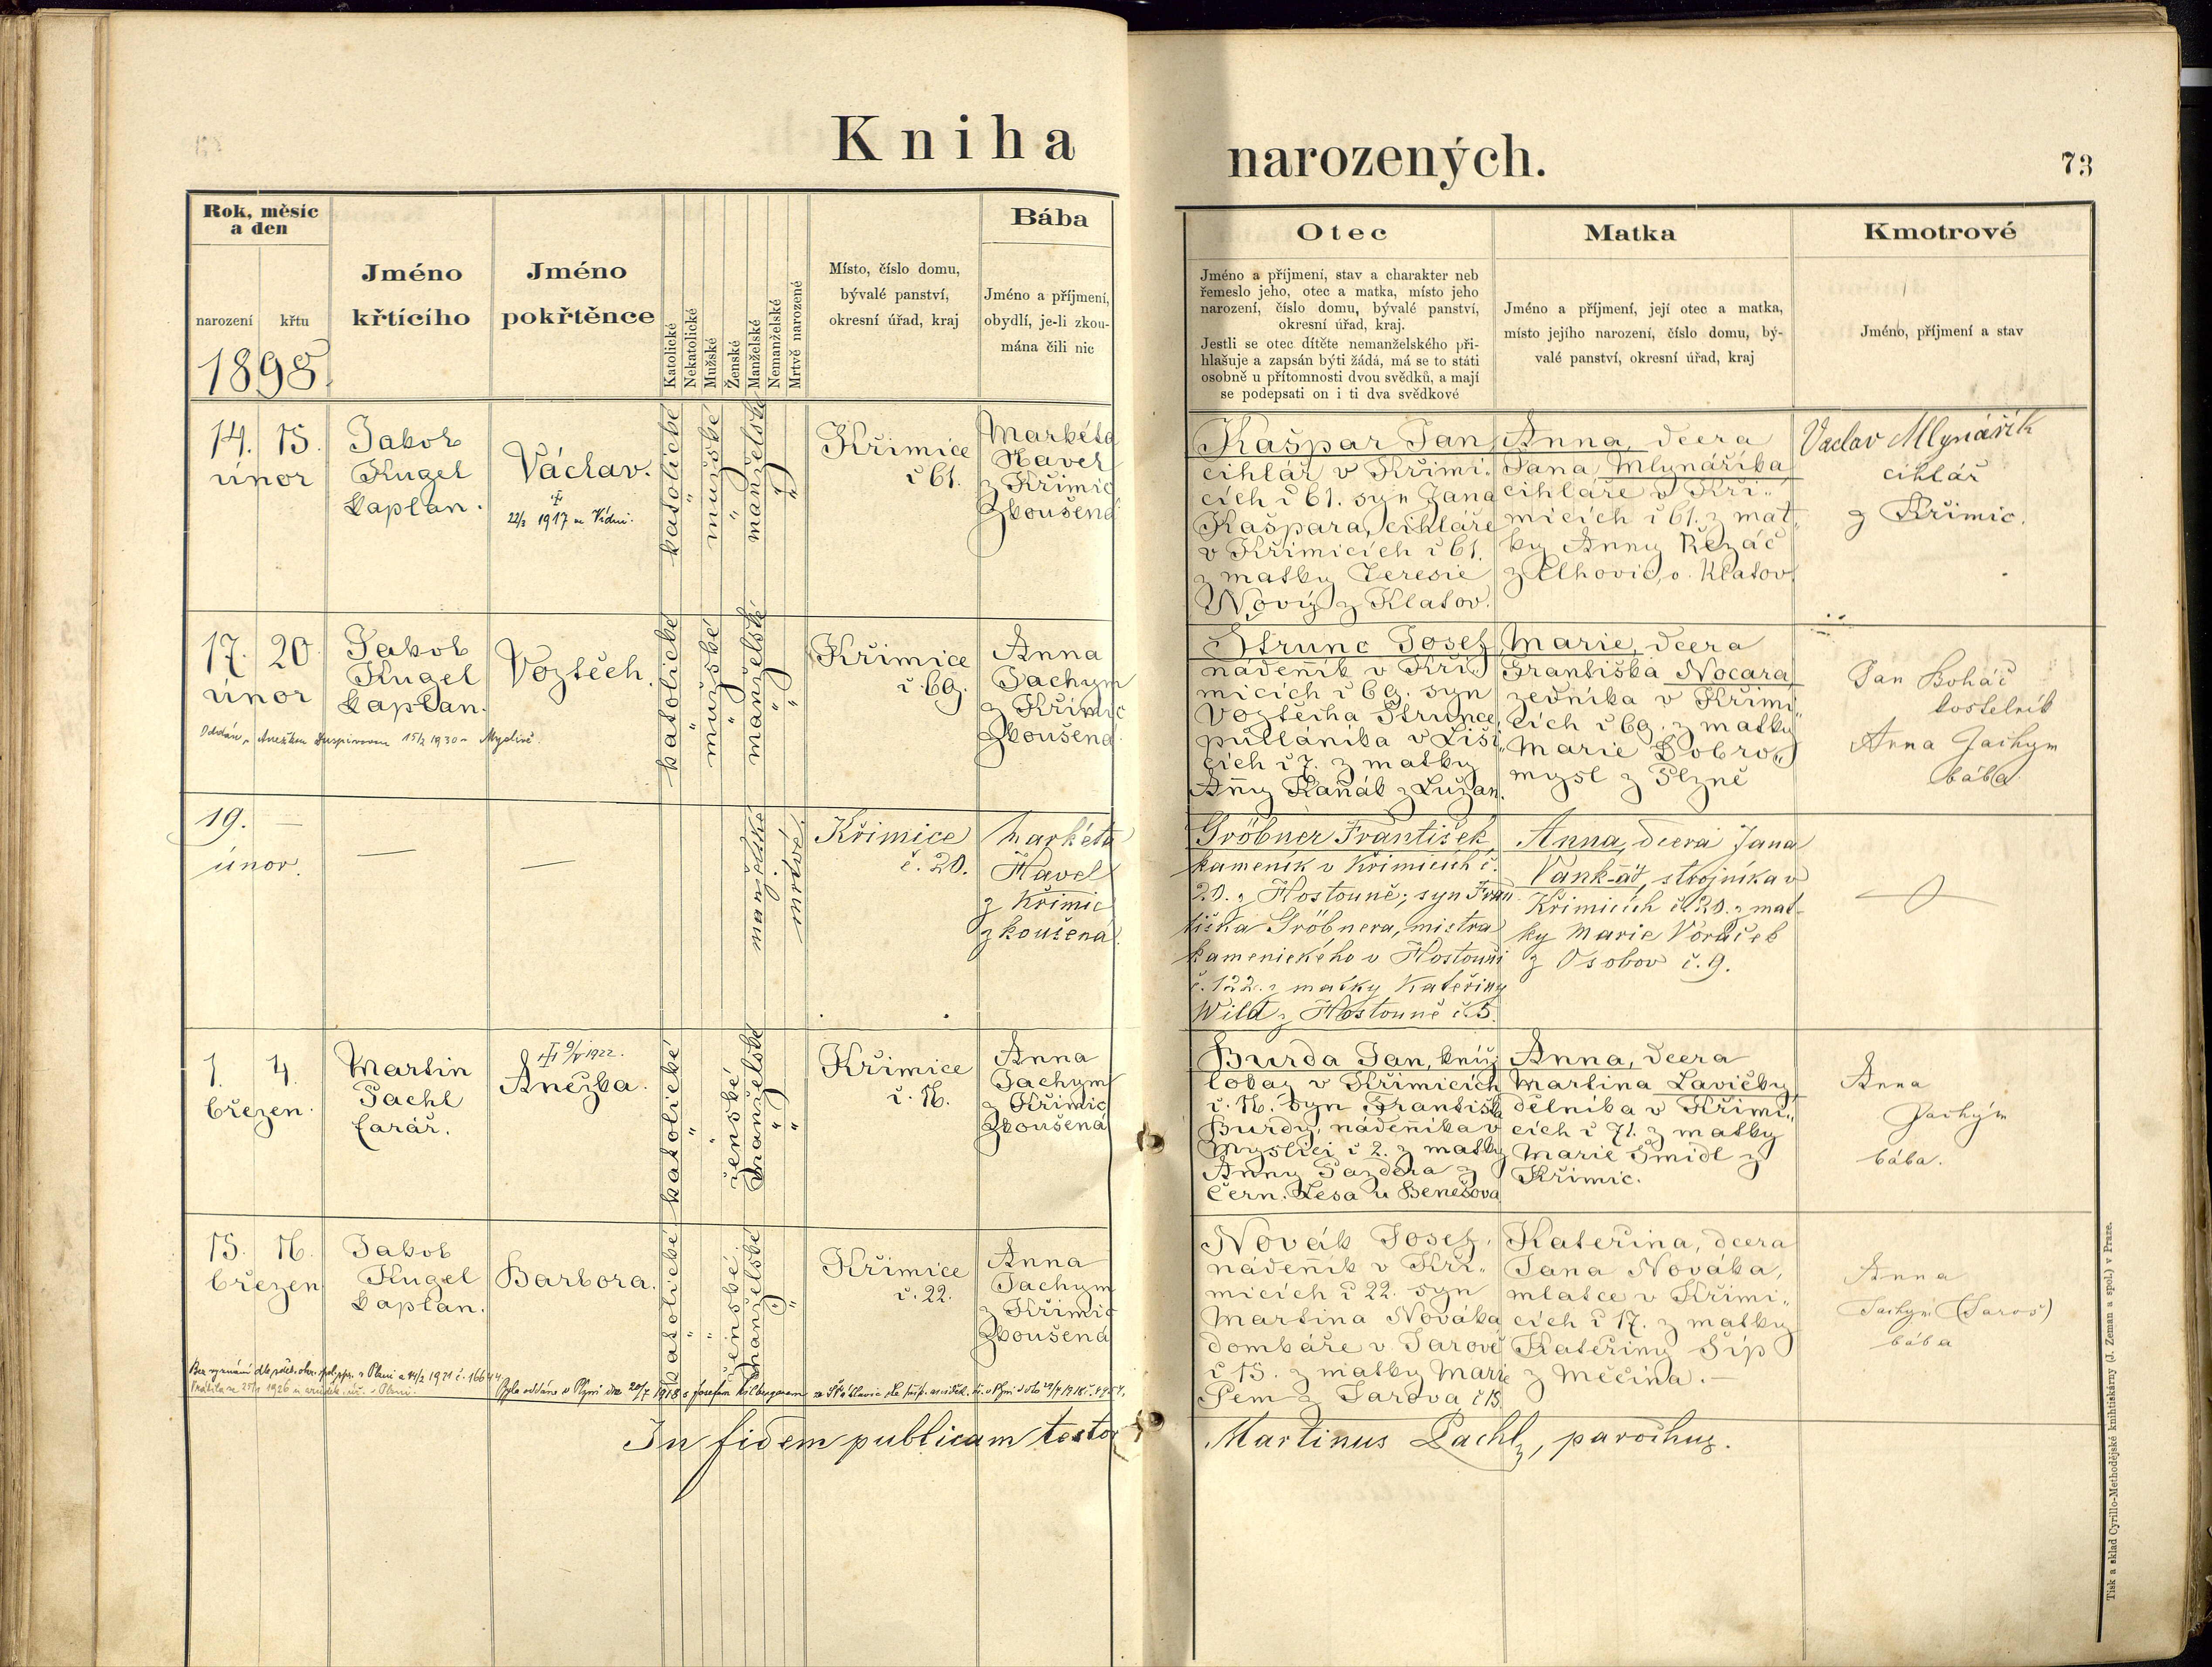 Kniha
narozených.
73
Rok, měsíc
a den
narození
křtu
1898.
Jméno
křtícího
Jméno
pokřtěnce
Katolické
Nekatolické
Mužské
Ženské
Manželské
Nemanželské
Mrtvě narozené
Místo, číslo domu,
bývalé panství,
okresní úřad, kraj
Bába
Jméno a příjmení,
obydlí, je-li zkou-
mána čili nic
Otec
Jméno a příjmení, stav a charakter neb
řemeslo jeho, otec a matka, místo jeho
narození, číslo domu, bývalé panství,
okresní úřad, kraj.
Jestli se otec dítěte nemanželského při-
hlašuje a zapsán býti žádá, má se to státi
osobně u přítomnosti dvou svědků, a mají
se podepsati on i ti dva svědkové
Matka
Jméno a příjmení, její otec a matka,
místo jejího narození, číslo domu, bý-
valé panství, okresní úřad, kraj
Kmotrové
Jméno, příjmení a stav
14. 15.
únor
Jakob
Kugel
kaplan.
Václav.
22/3 1917 ve Vídni.
katolické
"
mužské
"
manželské
"
"
Křimice
č 61.
Markéta
Havel
z Křimic
zkoušená
Kašpar Jan,
cihlář v Křimi„
cích č 61. syn Jana
Kašpara, cihláře
v Křimicích č 61.
z matky Teresie
Nový z Klatov.
Anna, dcera
Jana Mlynáříka
cihláře v Kři„
micích č 61. z mat„
ky Anny Řezáč
z Elhovic, o. Klatov
Vaclav Mlynářík
cihlář
z Křimic.
17. 20.
únor
Jakob
Kugel
kaplan.
Vojtěch.
Oddán s Anežkou 15/2 1930
katolické
"
mužské
"
manželské
"
"
Křimice
č. 69.
Anna
Jachym
z Křimic
zkoušená
Strunc Josef,
nádenník v Kři„
micích č 69. syn
Vojtěcha Strunce,
půllánika v Liši„
cích č 7. z matky
Anny Kaňák z Lužan.
Marie, dcera
Františka Nocara,
zedníka v Křimi„
cích č 69. z matky
Marie Dobro„
mysl z Plzně
Jan Boháč
kostelník
Anna Jachym
bába.
19. —
únor.
—
—
manželské
mrtvě nar.
Křimice
č. 20.
Markéta
Havel
z Křimic
zkoušená.
Gröbner František,
kameník v Křimicích č.
20. z Hostouně; syn Fran
tiška Gröbnera, mistra
kamenického v Hostouni
č. 122. z matky Kateřiny
Wild z Hostouně č. 5.
Anna, dcera Jana
Vank-ář, strojníka v
Křimicích č. 20. z mat-
ky Marie Voráček
z Osobov č. 9.
1. 4.
březen.
Martin
Pachl
farář.
9/V 1922.
Anežka.
katolické
"
"
ženské
manželské
"
"
Křimice
č. 16.
Anna
Jachym
z Křimic
zkoušená
Burda Jan, kníž.
lokaj v Křimicích
č. 16. syn Františka
Burdy, nádenníka v
Myslici č 2. z matky
Anny Pazdera z
Čern. Lesa u Benešova
Anna, dcera
Martina Lavičky,
dělníka v Křimi„
cích č 71. z matky
Marie Šmidl z
Křimic.
Anna
Jachým
bába.
15. 16.
březen
Jakob
Kugel
kaplan.
Barbora.
katolické
"
"
ženské
manželské
"
Křimice
č. 22.
Anna
Jachym
z Křimic
zkoušená
Novák Josef,
nádenník v Kři„
micích č 22. syn
Martina Nováka
domkáře v Jarově
č 15. z matky Marie
Pem z Jarova, č 15.
Kateřina, dcera
Jana Nováka,
mlatce v Křimi„
cích č 17. z matky
Kateřiny Šíp
z Měčína. —
Anna
Jachym (Jaroš)
bába
Bez vyznání dle 14/2 1921 č. 16644
Vrátila se 25/1 1926
Byla oddána v Plzni dne 20/7 1918 s Josefem
In fidem publicam testor
Martinus Pachl, parochus.
Tisk a sklad Cyrillo-Methodějské knihtiskárny (J. Zeman a spol.) v Praze.